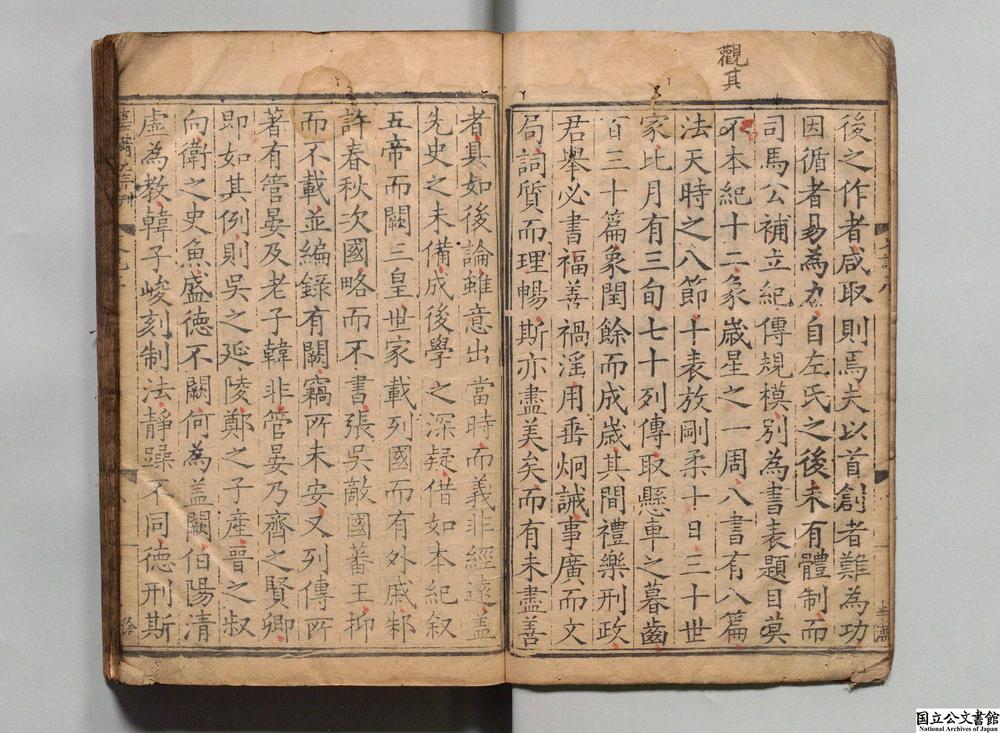 觀其
後之作者咸取則焉夫以首創者難為功
因循者易為力自左氏之後未有體制而
司馬公補立紀傳規模別為書表題目莫
不本紀十二象歲星之一周八書有八篇
法天時之八節十表放剛柔十日三十世
家比月有三旬七十列傳取懸車之暮齒
百三十篇象閏餘而成歲其間禮樂刑政
君舉必書福善禍淫用垂炯誡事廣而文
局詞質而理暢斯亦盡美矣而有未盡善
者具如後論雖意出當時而義非經遠蓋
先史之未備成後學之深疑借如本紀叙
五帝而闕三皇世家載列國而有外戚邾
許春秋次國略而不書張吳敵國蕃王抑
而不載並編錄有闕竊所未安又列傳所
著有管晏及老子韓非管晏乃齊之賢卿
即如其例則吳之延陵鄭之子產晉之叔
向衛之史魚盛德不闕何為盖闕伯陽清
虛為教韓子峻刻制法靜躁不同德刑斯
国立公文書館
National Archives of Japan